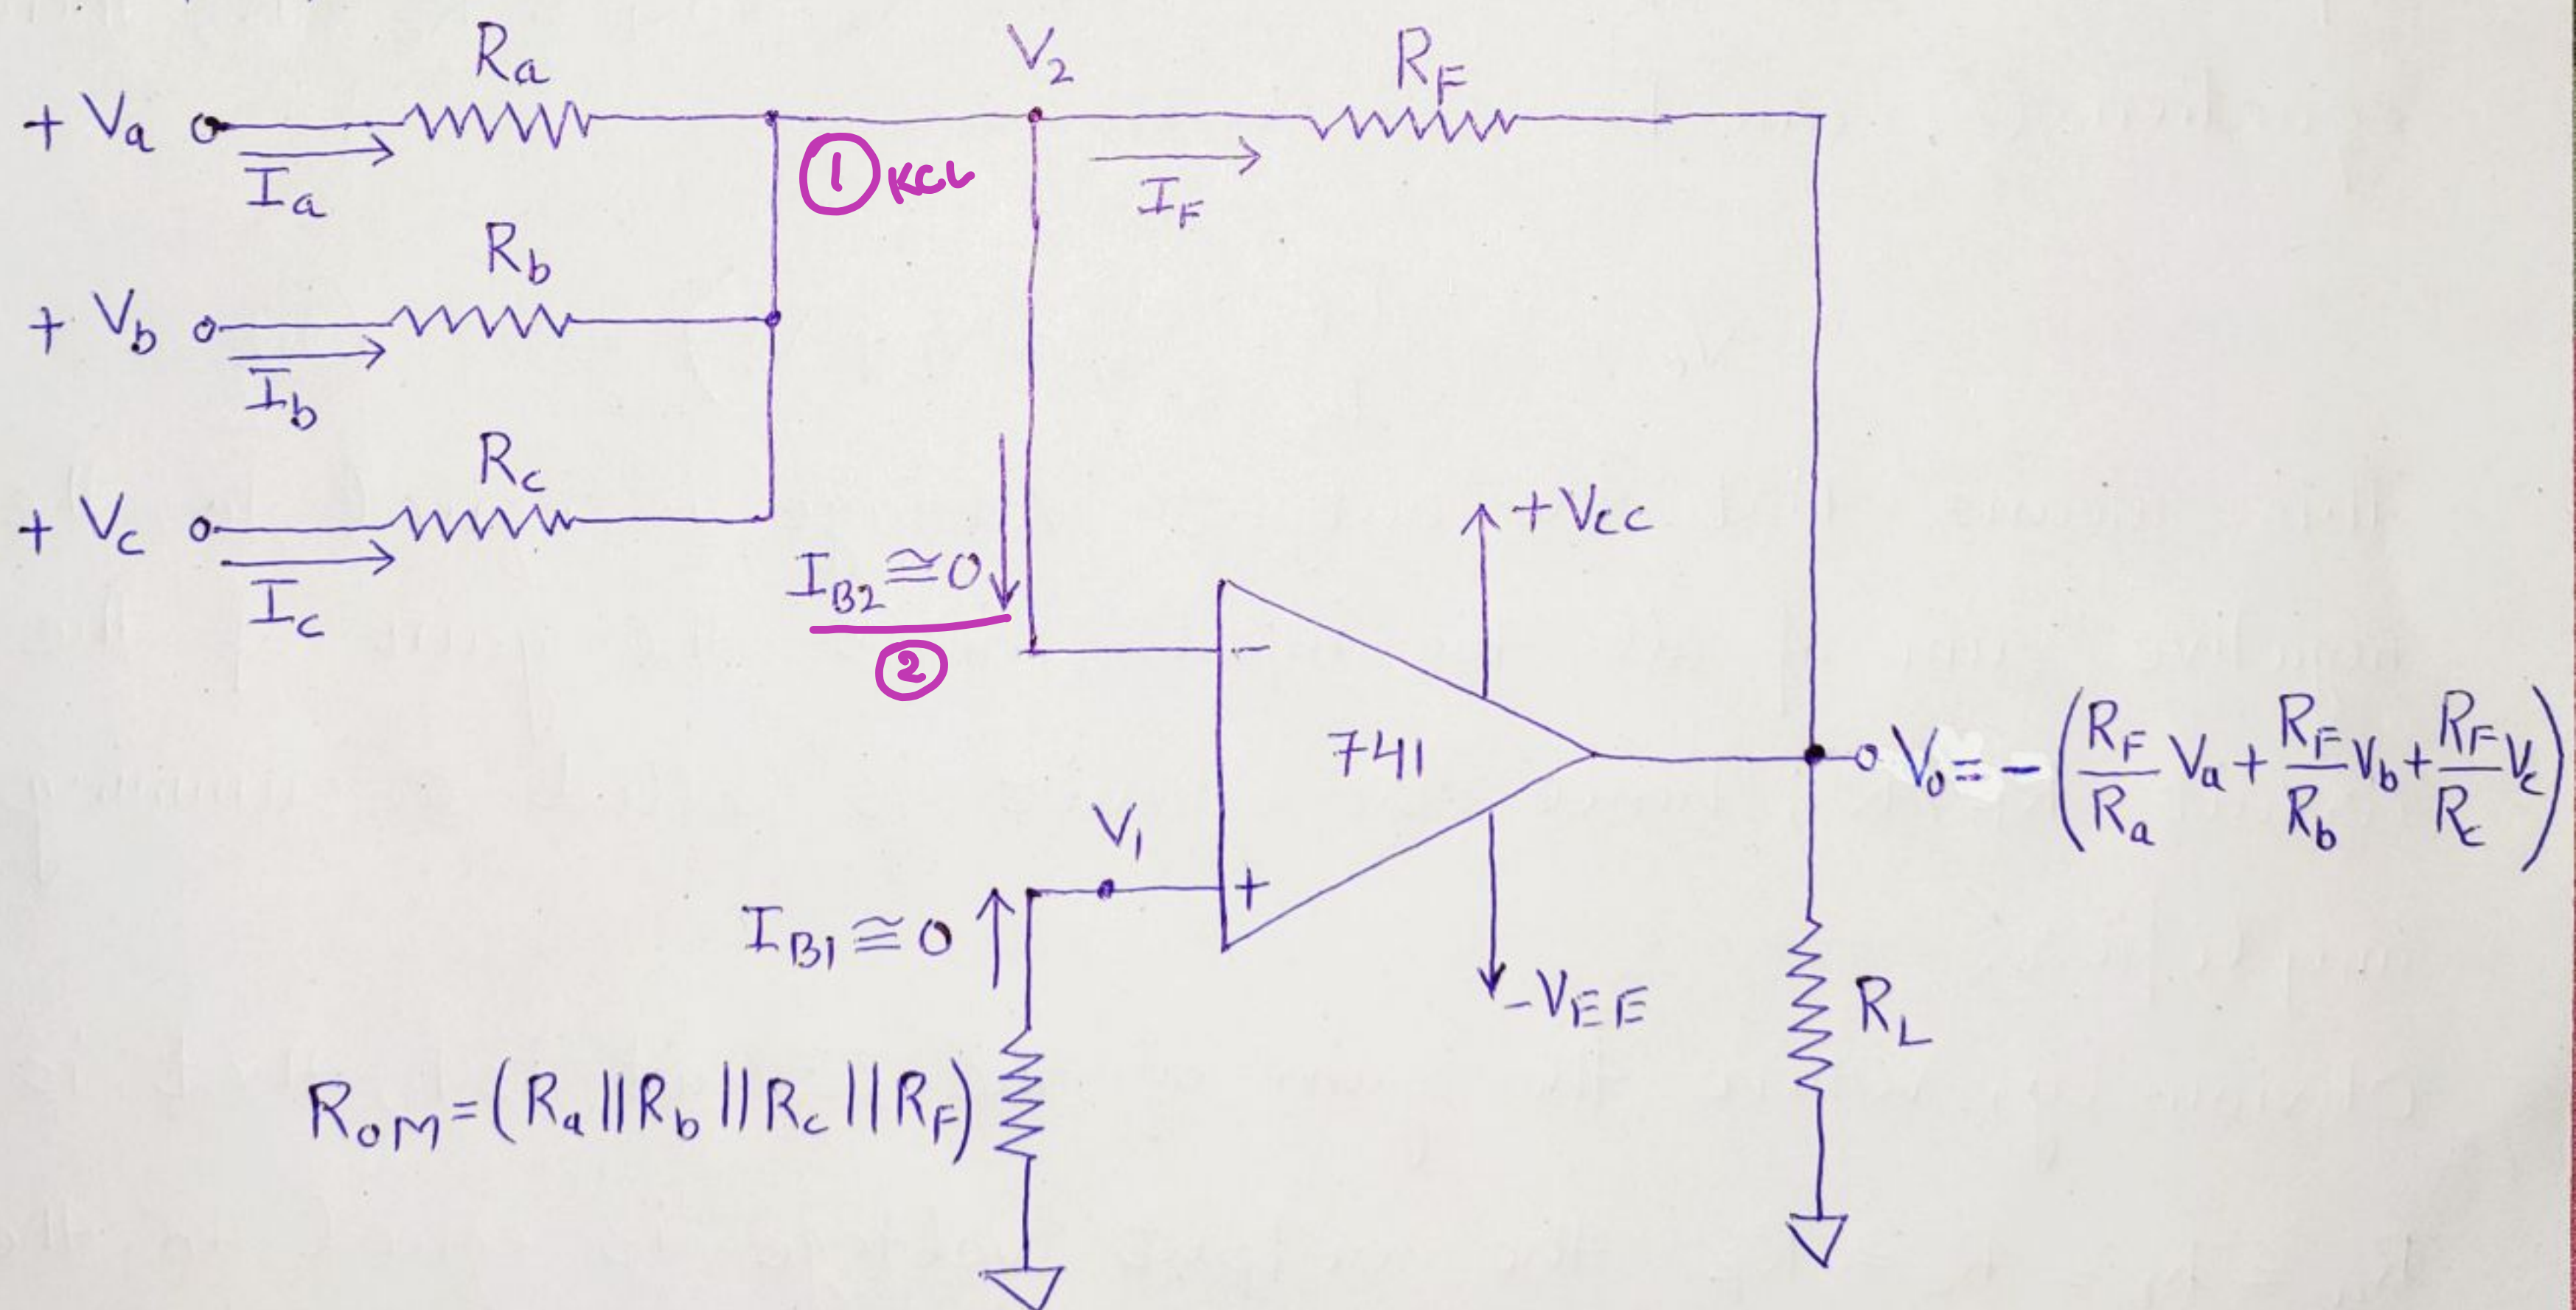 Ra
V2
RF
+ Va
Ia
① KCL
IF
Rb
+ Vb
Ib
Rc
+ Vc
Ic
IB2 ≅ 0
②
+VCC
-
741
+
V1
IB1 ≅ 0
-VEE
Vo = - (RF/Ra Va + RF/Rb Vb + RF/Rc Vc)
RL
ROM = (Ra || Rb || Rc || RF)